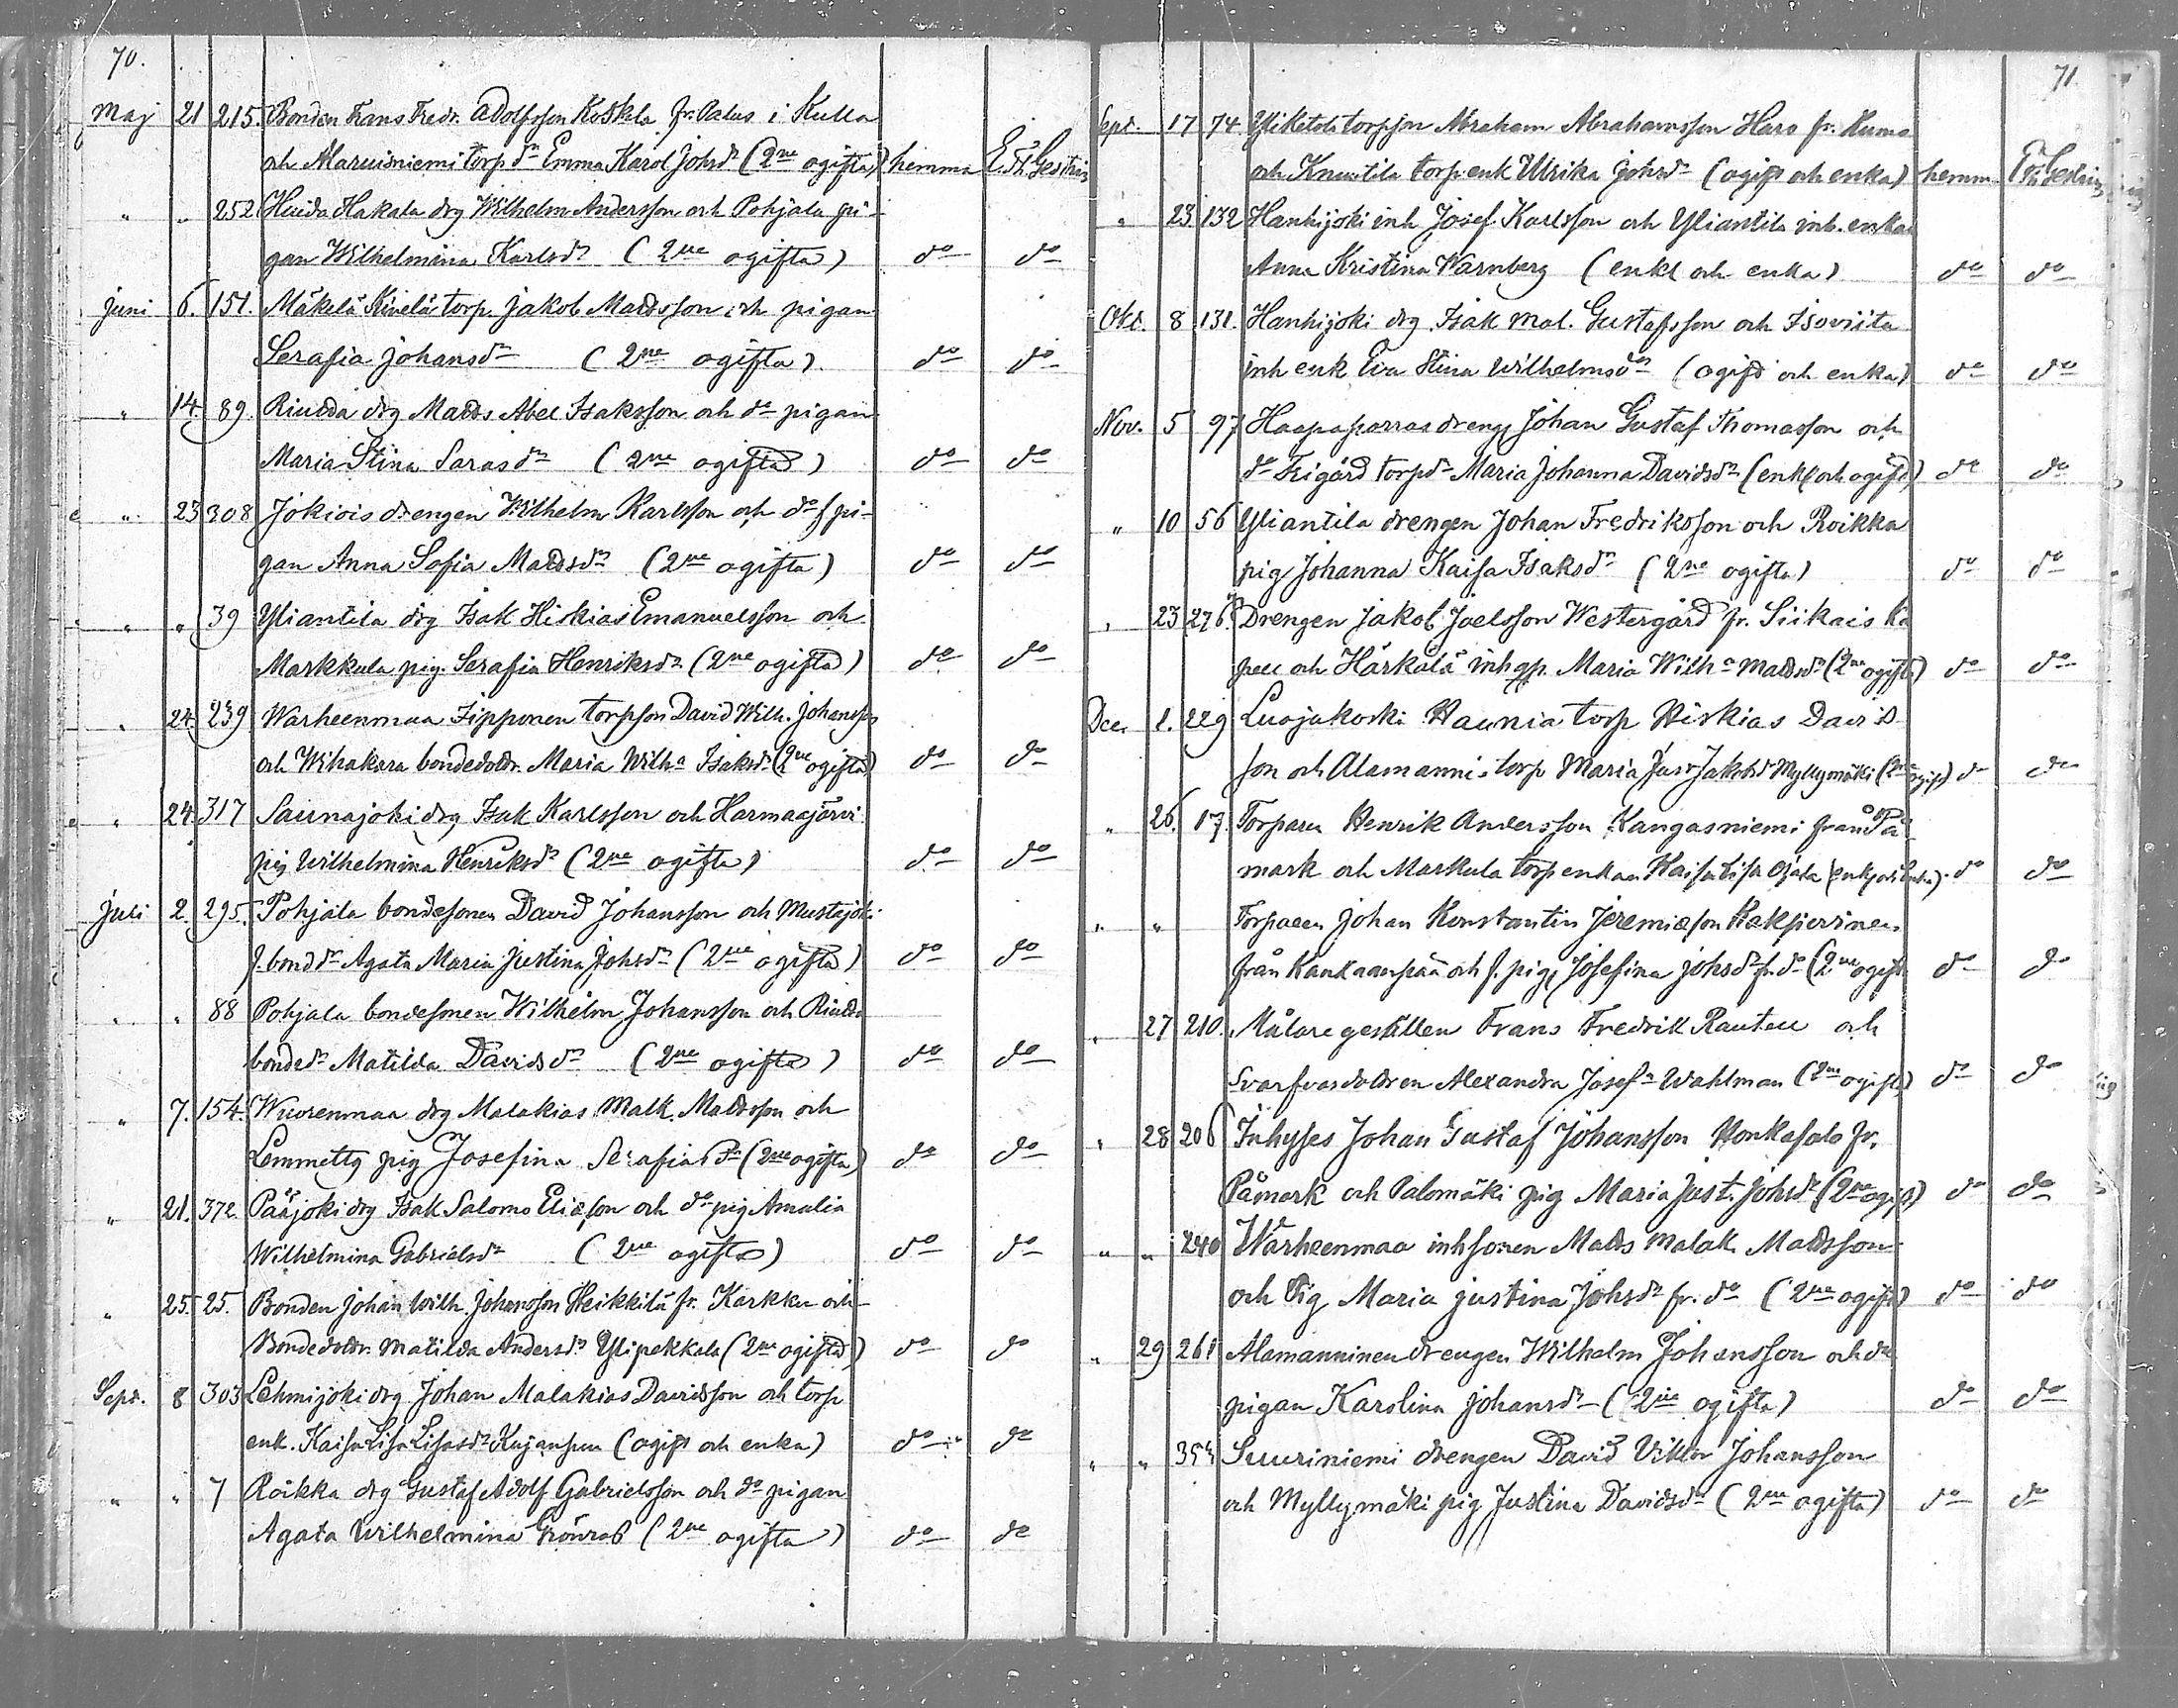 70.
Maj 21 215. Bonden Frans Fredr. Adolfsson Koskela fr. Palus i Kulla
och Maruisniemi torp dr Emma Karol Johsdr (2ne ogifta) hemma E. Th. Gestrin
" " 252 Huida Hakala drg Wilhelm Andersson och Pohjala pi-
gan Wilhelmina Karlsdr (2ne ogifta) do do
Juni 6. 151. Mäkelä Kivelä torp. Jakob Mattsson och pigan
Serafia Johansdr (2ne ogifta) do do
" 14. 89. Riutta drg Matts Abel Isaksson och do pigan
Maria Stina Sarasdr (2ne ogifta) do do
" 23 308 Jokiois drengen Wilhelm Karlsson och do f pi-
gan Anna Sofia Mattsdr (2ne ogifta) do do
" " 39 Yliantila drg Isak Hiskias Emanuelsson och
Markkula pig. Serafia Henriksdr (2ne ogifta) do do
" 24. 239 Warheenmaa Sipponen torpson David Wilh. Johansson
och Wihakara bondedotr. Maria Wilha Isaksdr (2ne ogifta) do do
" 24. 317 Saunajoki drg Isak Karlsson och Harmaajärvi
pig Wilhelmina Henriksdr (2ne ogifta) do do
Juli 2. 295. Pohjala bondesonen David Johansson och Mustajoki
f. bond dr Agata Maria Justina Johsdr (2ne ogifta) do do
" " 88 Pohjala bondesonen Wilhelm Johansson och Riutta
bondedr Matilda Davidsdr (2ne ogifta) do do
" 7. 154. Wuorenmaa drg Malakias Malk. Mattsson och
Lemmetty pig Josefina Serafiasdr (2ne ogifta) do do
" 21. 372 Pääjoki drg Isak Salomo Eliasson och do pig Amalia
Wilhelmina Gabrielsdr (2ne ogifta) do do
" 25. 25. Bonden Johan Wilh. Johansson Heikkilä fr. Karkku och
Bondedotr. Matilda Andersdr Ylipekkala (2ne ogifta) do do
Sept. 8 303 Lehmijoki drg Johan Malakias Davidsson och torp
enk. Kaisa Lisa Lisasdr Kujanpuu (ogift och enka) do do
" " 7 Roikka drg Gustaf Adolf Gabrielsson och do pigan
Agata Wilhelmina Grönroos (2ne ogifta) do do
71.
Sept. 17 74 Yliketola torpson Abraham Abrahamsson Haro fr. Kumo
och Knuutila torp.enk Ulrika Johsdr (ogift och enka) hemma E Th Gestrin
" 23 132 Hanhijoki inh Josef Karlsson och Yliantila inh. enkan
Anna Kristina Warnberg (enkl och enka) do do
Okt. 8 131. Hanhijoki drg Isak Mal. Gustafsson och Isoviita
inh enk Eva Stina Wilhelmsdr (ogift och enka) do do
Nov. 5 97 Haapaparras dreng Johan Gustaf Thomasson och
do Frigård torpdr Maria Johanna Davidsdr (enkl och ogift) do do
" 10 56 Yliantila drengen Johan Fredriksson och Roikka
pig Johanna Kaisa Isaksdr (2ne ogifta) do do
" 23 276 Drengen Jakob Joelsson Westergård fr. Siikais ka
pell och Härkälä inhyp. Maria Wilha Mattsdr (2ne ogifta) do do
Dec. 1. 229 Luojakoski Haunia torp Hiskias Davis
son och Alamanni torp Maria Just Jakobsdr Myllymäki (2ne ogift) do do
" 26. 17. Torparen Henrik Andersson Kangasniemi från På
mark och Markula torp enkan Kaisa Lisa Ojala (enkl och enka). do do
" " Torparen Johan Konstantin Jeremiasson Kakperinen
från Kankaanpää och f. pig Josefina Johsdr fr. do (2ne ogift do do
" 27 210. Målaregesällen Frans Fredrik Rautell och
Svarfvardottren Alexandra Josefa Wahlman (2ne ogift) do do
" 28 206 Inhyses Johan Gustaf Johansson Honkasalo fr.
Påmark och Palomäki pig Maria Just. Johsdr (2ne ogift) do do
" " 240 Warheenmaa inhsonen Matts Malak. Mattsson
och Pig Maria Justina Johsdr fr. do (2ne ogift) do do
" 29 261 Alamanninen drengen Wilhelm Johansson och do
pigan Karolina Johansdr (2ne ogifta) do do
" " Suuriniemi drengen David Viktor Johansson
och Myllymäki pig Justina Davidsdr (2ne ogifta) do do